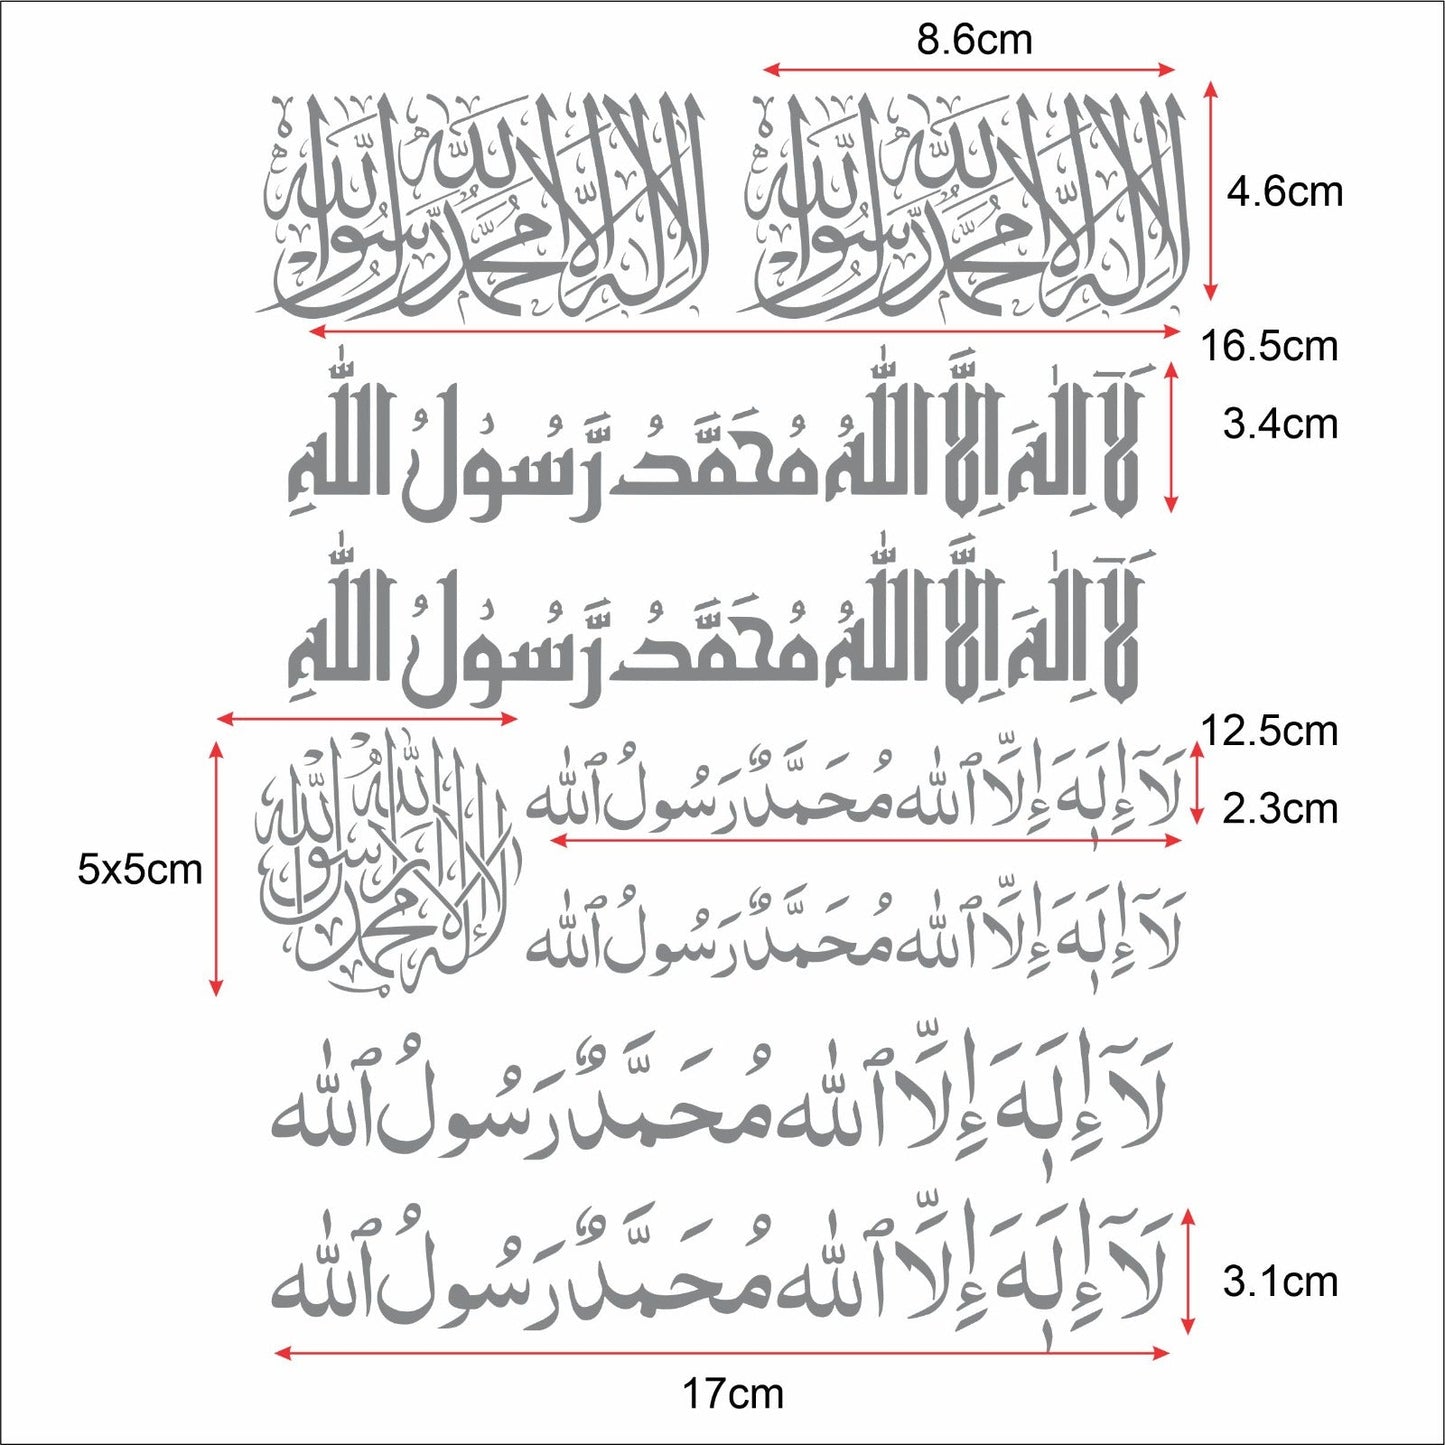 8.6cm
لا إله إلا الله محمد رسول الله لا إله إلا الله محمد رسول الله
4.6cm
16.5cm
لَآ اِلٰهَ اِلَّا اللّٰهُ مُحَمَّدُ رَّسُوْلُ اللّٰهِ
3.4cm
لَآ اِلٰهَ اِلَّا اللّٰهُ مُحَمَّدُ رَّسُوْلُ اللّٰهِ
12.5cm
لَآ إِلَٰهَ إِلَّا ٱللَّه مُحَمَّدٌ رَسُولُ ٱللَّه
2.3cm
5x5cm
لا إله إلا الله محمد رسول الله
لَآ إِلَٰهَ إِلَّا ٱللَّه مُحَمَّدٌ رَسُولُ ٱللَّه
لَآ إِلَٰهَ إِلَّا ٱللَّه مُحَمَّدٌ رَسُولُ ٱللَّه
لَآ إِلَٰهَ إِلَّا ٱللَّه مُحَمَّدٌ رَسُولُ ٱللَّه
3.1cm
17cm